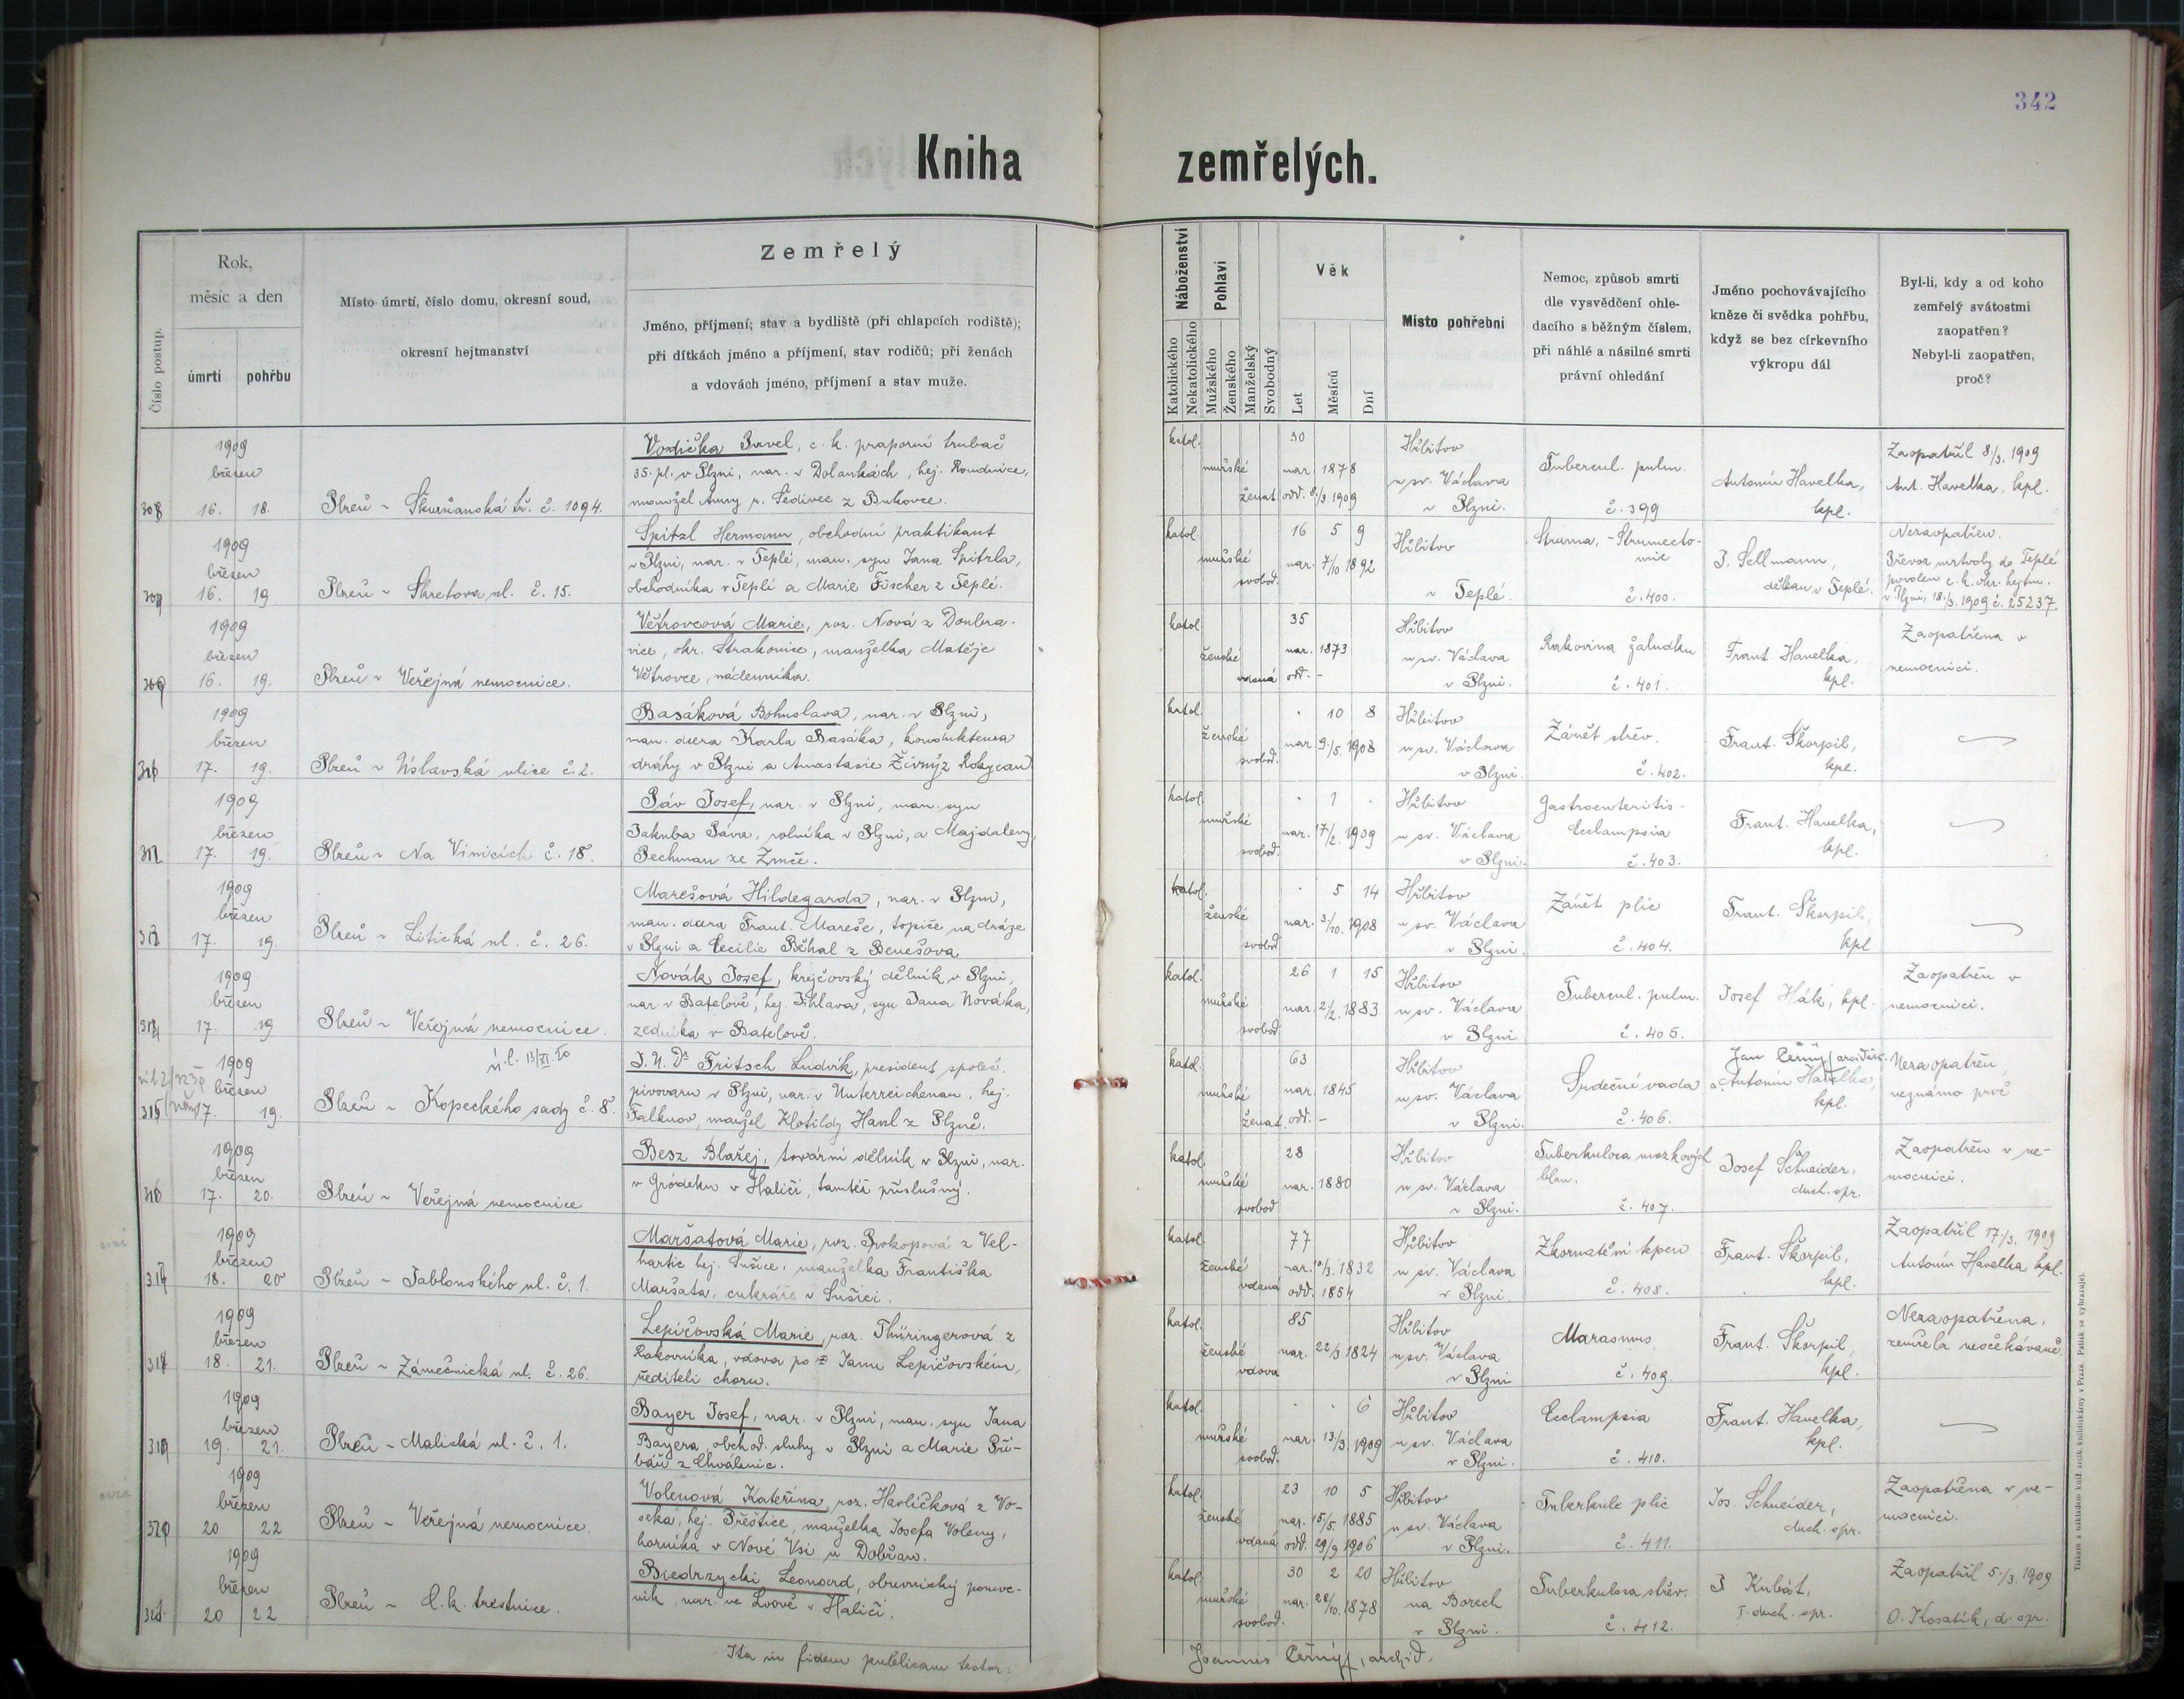 342
Kniha zemřelých.
Číslo postup.
Rok,
měsíc a den
úmrtí
pohřbu
Místo úmrtí, číslo domu, okresní soud,
okresní hejtmanství
Zemřelý
Jméno, příjmení; stav a bydliště (při chlapcích rodiště);
při dítkách jméno a příjmení, stav rodičů; při ženách
a vdovách jméno, příjmení a stav muže.
Náboženství
Katolického
Nekatolického
Pohlaví
Mužského
Ženského
Manželský
Svobodný
Věk
Let
Měsíců
Dní
Místo pohřební
Nemoc, způsob smrti
dle vysvědčení ohle-
dacího s běžným číslem,
při náhlé a násilné smrti
právní ohledání
Jméno pochovávajícího
kněze či svědka pohřbu,
když se bez církevního
výkropu dál
Byl-li, kdy a od koho
zemřelý svátostmi
zaopatřen?
Nebyl-li zaopatřen,
proč?
1909
březen
16. 18.
Plzeň - Škurňanská tř. č. 1094.
Vodička Pavel, c. k. praporní trubač
35. pl. v Plzni, nar. v Dolankách, hej. Roudnice,
manžel Anny r. Šedivec z Bukovce.
katol.
mužské
ženat
30
nar. 1878
odd. 8/3 1909
Hřbitov
u sv. Václava
v Plzni.
Tubercul. pulm.
č. 399
Antonín Havelka,
kpl.
Zaopatřil 8/3. 1909
Ant. Havelka, kpl.
1909
březen
16. 19
Plzeň - Skretova ul. č. 15.
Spitzl Hermann, obchodní praktikant
v Plzni, nar. v Teplé, man. syn Jana Spitzla,
obchodníka v Teplé a Marie Fischer z Teplé.
katol
mužské
svobod.
16 5 9
nar. 7/10 1892
Hřbitov
v Teplé.
Struma, - Strumecto-
mie
č. 400.
J. Sellmann,
děkan v Teplé.
Nezaopatřen.
Převoz mrtvoly do Teplé
povolen c. k. okr. hejtm.
v Plzni, 18./3. 1909 č. 25237.
1909
březen
16. 19.
Plzeň - Veřejná nemocnice.
Větrovcová Marie, roz. Nová z Doubra-
vice, okr. Strakonice, manželka Matěje
Větrovce, nádenníka.
katol
ženské
vdaná
35
nar. 1873
odd. -
Hřbitov
u sv. Václava
v Plzni.
Rakovina žaludku
č. 401.
Frant. Havelka,
kpl.
Zaopatřena v
nemocnici.
1909
březen
17. 19.
Plzeň - Úslavská ulice č. 2.
Basáková Bohuslava, nar. v Plzni,
man. dcera Karla Basáka, konduktera
dráhy v Plzni a Anastasie Živný z Rokycan
katol.
ženské
svobod.
. 10 8
nar. 9./5. 1908
Hřbitov
u sv. Václava
v Plzni.
Zánět střev.
č. 402.
Frant. Škorpil,
kpl.
1909
březen
17. 19.
Plzeň - Na Vinicích č. 18.
Páv Josef, nar. v Plzni, man. syn
Jakuba Páva, rolníka v Plzni, a Majdaleny
Pechman ze Zruče.
katol.
mužské
svobod.
. 1 .
nar. 17/2. 1909
Hřbitov
u sv. Václava
v Plzni.
Gastroenteritis -
Ecclampsia
č. 403.
Frant. Havelka,
kpl.
1909
březen
17. 19.
Plzeň - Litická ul. č. 26.
Marešová Hildegarda, nar. v Plzni,
man. dcera Frant. Mareše, topiče na dráze
v Plzni a Cecilie Běhal z Benešova
katol.
ženské
svobod
. 5 14
nar. 3/10. 1908
Hřbitov
u sv. Václava
v Plzni
Zánět plic
č. 404.
Frant. Škorpil,
kpl
1909
březen
17. 19
Plzeň - Veřejná nemocnice.
Novák Josef, krejčovský dělník v Plzni,
nar v Batelově, hej. Jihlava, syn Jana Nováka,
zedníka v Batelově.
katol
mužské
svobod.
26 1 15
nar. 2/2. 1883
Hřbitov
u sv. Václava
v Plzni
Tubercul. pulm.
č. 405.
Josef Hák, kpl.
Zaopatřen v
nemocnici.
1909
březen
17. 19.
Plzeň - Kopeckého sady č. 8.
J. U. Dr Fritsch Ludvík, president společ.
pivovaru v Plzni, nar. v Unterreichenau, hej.
Falknov, manžel Klotildy Hasl z Plzně.
katol.
mužské
ženat
63
nar. 1845
odd. -
Hřbitov
u sv. Václava
v Plzni.
Srdeční vada
č. 406.
Jan Černý, arciděk.
a Antonín Havelka,
kpl.
Nezaopatřen,
neznámo proč
1909
březen
17. 20.
Plzeň - Veřejná nemocnice
Besz Blažej, tovární dělník v Plzni, nar.
v Gródeku v Haliči, tamtéž příslušný.
katol
mužské
svobod
28
nar. 1880
Hřbitov
u sv. Václava
v Plzni.
Tuberkulosa mozkových
blan.
č. 407.
Josef Schneider,
duch. spr.
Zaopatřen v ne-
mocnici.
1909
březen
18. 20
Plzeň - Jablonského ul. č. 1.
Maršatová Marie, roz. Prokopová z Vel-
hartic hej. Sušice, manželka Františka
Maršata, cukráře v Sušici.
katol
ženské
vdaná
77
nar. 10/3. 1832
odd. 1854
Hřbitov
u sv. Václava
v Plzni.
Zkornatění tepen
č. 408.
Frant. Škorpil,
kpl.
Zaopatřil 17/3. 1909
Antonín Havelka kpl.
1909
březen
18. 21.
Plzeň - Zámečnická ul. č. 26.
Lepičovská Marie, roz. Thüringerová z
Rakovníka, vdova po Janu Lepičovském,
řediteli choru.
katol
ženské
vdova
85
nar. 22/3 1824
Hřbitov
u sv. Václava
v Plzni
Marasmus
č. 409.
Frant. Škorpil,
kpl.
Nezaopatřena,
zemřela neočekávaně.
1909
březen
19. 21.
Plzeň - Malická ul. č. 1.
Bayer Josef, nar. v Plzni, man. syn Jana
Bayera, obchod. sluhy v Plzni a Marie Při-
báň z Chválenic.
katol.
mužské
svobod.
. . 6
nar. 13/3. 1909
Hřbitov
u sv. Václava
v Plzni.
Ecclampsia
č. 410.
Frant. Havelka,
kpl.
1909
březen
20 22
Plzeň - Veřejná nemocnice.
Volenová Kateřina, roz. Havlíčková z Vo-
seka, hej. Přeštice, manželka Josefa Voleny,
horníka v Nové Vsi u Dobřan.
katol.
ženské
vdaná
23 10 5
nar. 15/5. 1885
odd. 29/9 1906
Hřbitov
u sv. Václava
v Plzni.
Tuberkule plic
č. 411.
Jos. Schneider,
duch. spr.
Zaopatřena v ne-
mocnici.
1909
březen
20 22
Plzeň - C. k. trestnice.
Biedrzycki Leonard, obuvnický pomoc-
ník, nar. ve Lvově v Haliči.
katol
mužské
svobod.
30 2 20
nar. 28/10. 1878
Hřbitov
na Borech
v Plzni.
Tuberkulosa střev.
č. 412.
J Kubát,
I. duch. spr.
Zaopatřil 5./3. 1909
O. Kosatík, d. spr.
Ita in fidem publicam testor:
Joannes Černý, archid.